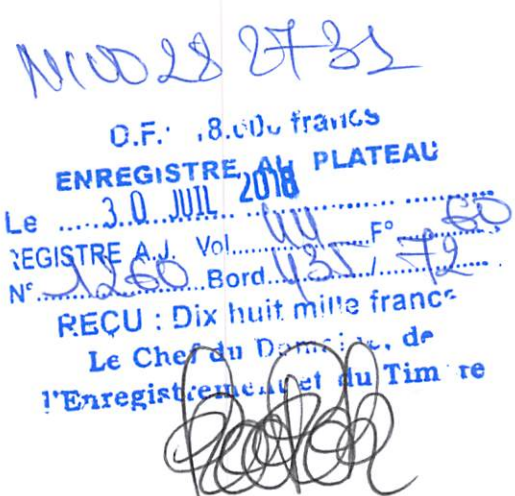 N°00 28 27 31
D.F: 18.000 francs
ENREGISTRE AU PLATEAU
Le ..... 30 JUIL. 2018 ..........
REGISTRE A.J. Vol. 44 F° 60
N° 1260 Bord 435 / 72
REÇU : Dix huit mille francs
Le Chef du Domaine, de
l'Enregistrement et du Timbre